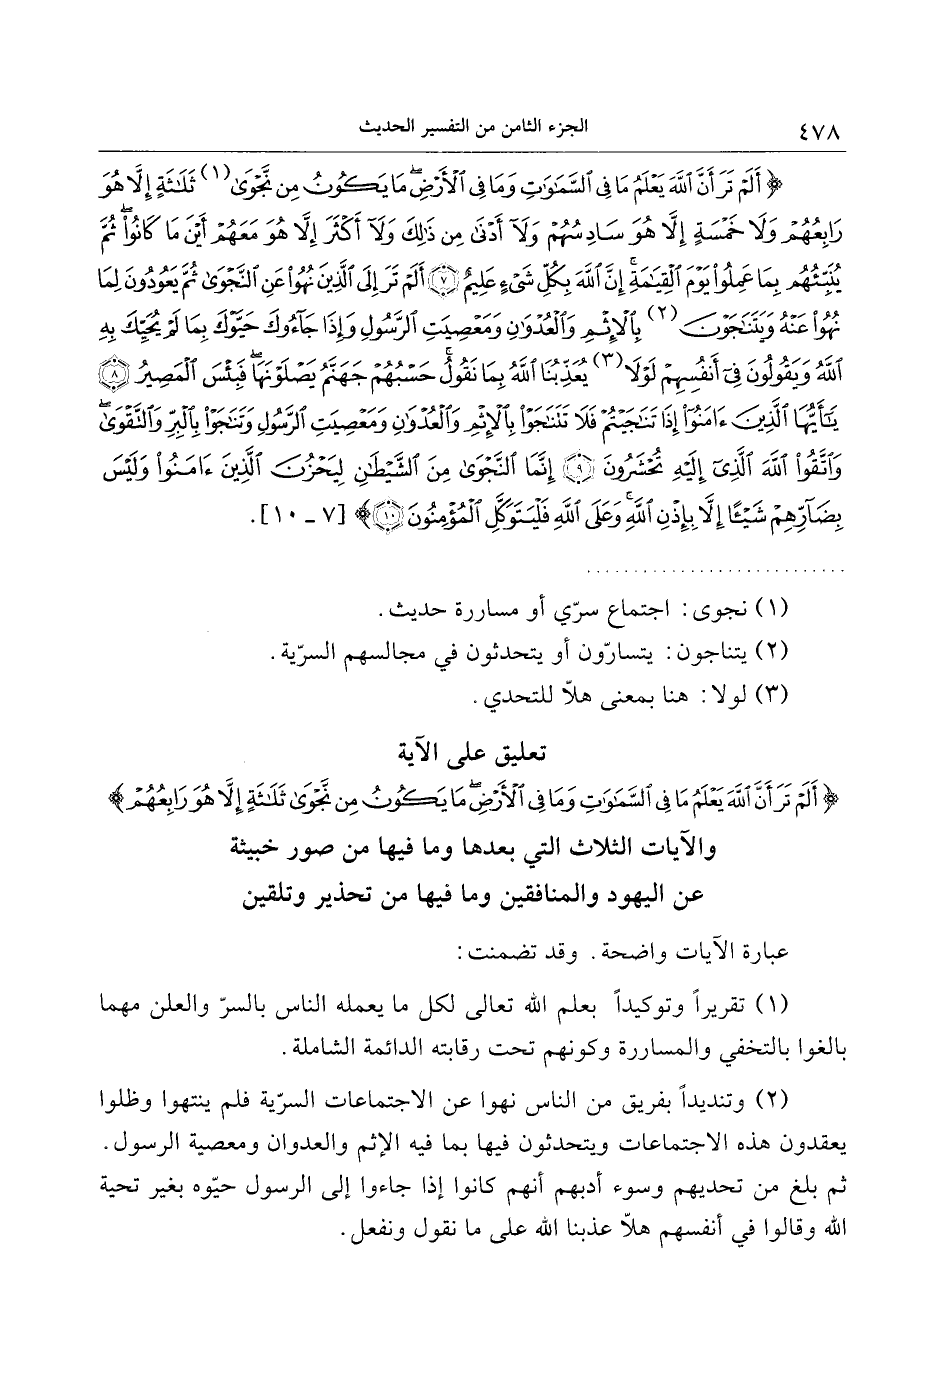 ٤٧٨ الجزء الثامن من التفسير الحديث
﴿ أَلَمْ تَرَ أَنَّ ٱللَّهَ يَعْلَمُ مَا فِى ٱلسَّمَٰوَٰتِ وَمَا فِى ٱلْأَرْضِۖ مَا يَكُونُ مِن نَّجْوَىٰ(١) ثَلَٰثَةٍ إِلَّا هُوَ
رَابِعُهُمْ وَلَا خَمْسَةٍ إِلَّا هُوَ سَادِسُهُمْ وَلَآ أَدْنَىٰ مِن ذَٰلِكَ وَلَآ أَكْثَرَ إِلَّا هُوَ مَعَهُمْ أَيْنَ مَا كَانُوا۟ۖ ثُمَّ
يُنَبِّئُهُم بِمَا عَمِلُوا۟ يَوْمَ ٱلْقِيَٰمَةِۚ إِنَّ ٱللَّهَ بِكُلِّ شَىْءٍ عَلِيمٌ ﴿٧﴾ أَلَمْ تَرَ إِلَى ٱلَّذِينَ نُهُوا۟ عَنِ ٱلنَّجْوَىٰ ثُمَّ يَعُودُونَ لِمَا
نُهُوا۟ عَنْهُ وَيَتَنَٰجَوْنَ(٢) بِٱلْإِثْمِ وَٱلْعُدْوَٰنِ وَمَعْصِيَتِ ٱلرَّسُولِ وَإِذَا جَآءُوكَ حَيَّوْكَ بِمَا لَمْ يُحَيِّكَ بِهِ
ٱللَّهُ وَيَقُولُونَ فِىٓ أَنفُسِهِمْ لَوْلَا(٣) يُعَذِّبُنَا ٱللَّهُ بِمَا نَقُولُۚ حَسْبُهُمْ جَهَنَّمُ يَصْلَوْنَهَاۖ فَبِئْسَ ٱلْمَصِيرُ ﴿٨﴾
يَٰٓأَيُّهَا ٱلَّذِينَ ءَامَنُوٓا۟ إِذَا تَنَٰجَيْتُمْ فَلَا تَتَنَٰجَوْا۟ بِٱلْإِثْمِ وَٱلْعُدْوَٰنِ وَمَعْصِيَتِ ٱلرَّسُولِ وَتَنَٰجَوْا۟ بِٱلْبِرِّ وَٱلتَّقْوَىٰۖ
وَٱتَّقُوا۟ ٱللَّهَ ٱلَّذِىٓ إِلَيْهِ تُحْشَرُونَ ﴿٩﴾ إِنَّمَا ٱلنَّجْوَىٰ مِنَ ٱلشَّيْطَٰنِ لِيَحْزُنَ ٱلَّذِينَ ءَامَنُوا۟ وَلَيْسَ
بِضَآرِّهِمْ شَيْـًٔا إِلَّا بِإِذْنِ ٱللَّهِۚ وَعَلَى ٱللَّهِ فَلْيَتَوَكَّلِ ٱلْمُؤْمِنُونَ ﴿١٠﴾ ﴾ [٧ ـ ١٠].
(١) نجوى: اجتماع سرّي أو مساررة حديث.
(٢) يتناجون: يتسارّون أو يتحدثون في مجالسهم السرّية.
(٣) لولا: هنا بمعنى هلاّ للتحدي.
تعليق على الآية
﴿ أَلَمْ تَرَ أَنَّ ٱللَّهَ يَعْلَمُ مَا فِى ٱلسَّمَٰوَٰتِ وَمَا فِى ٱلْأَرْضِۖ مَا يَكُونُ مِن نَّجْوَىٰ ثَلَٰثَةٍ إِلَّا هُوَ رَابِعُهُمْ ﴾
والآيات الثلاث التي بعدها وما فيها من صور خبيثة
عن اليهود والمنافقين وما فيها من تحذير وتلقين
عبارة الآيات واضحة. وقد تضمنت:
(١) تقريراً وتوكيداً بعلم الله تعالى لكل ما يعمله الناس بالسرّ والعلن مهما
بالغوا بالتخفي والمساررة وكونهم تحت رقابته الدائمة الشاملة.
(٢) وتنديداً بفريق من الناس نهوا عن الاجتماعات السرّية فلم ينتهوا وظلوا
يعقدون هذه الاجتماعات ويتحدثون فيها بما فيه الإثم والعدوان ومعصية الرسول.
ثم بلغ من تحديهم وسوء أدبهم أنهم كانوا إذا جاءوا إلى الرسول حيّوه بغير تحية
الله وقالوا في أنفسهم هلاّ عذبنا الله على ما نقول ونفعل.